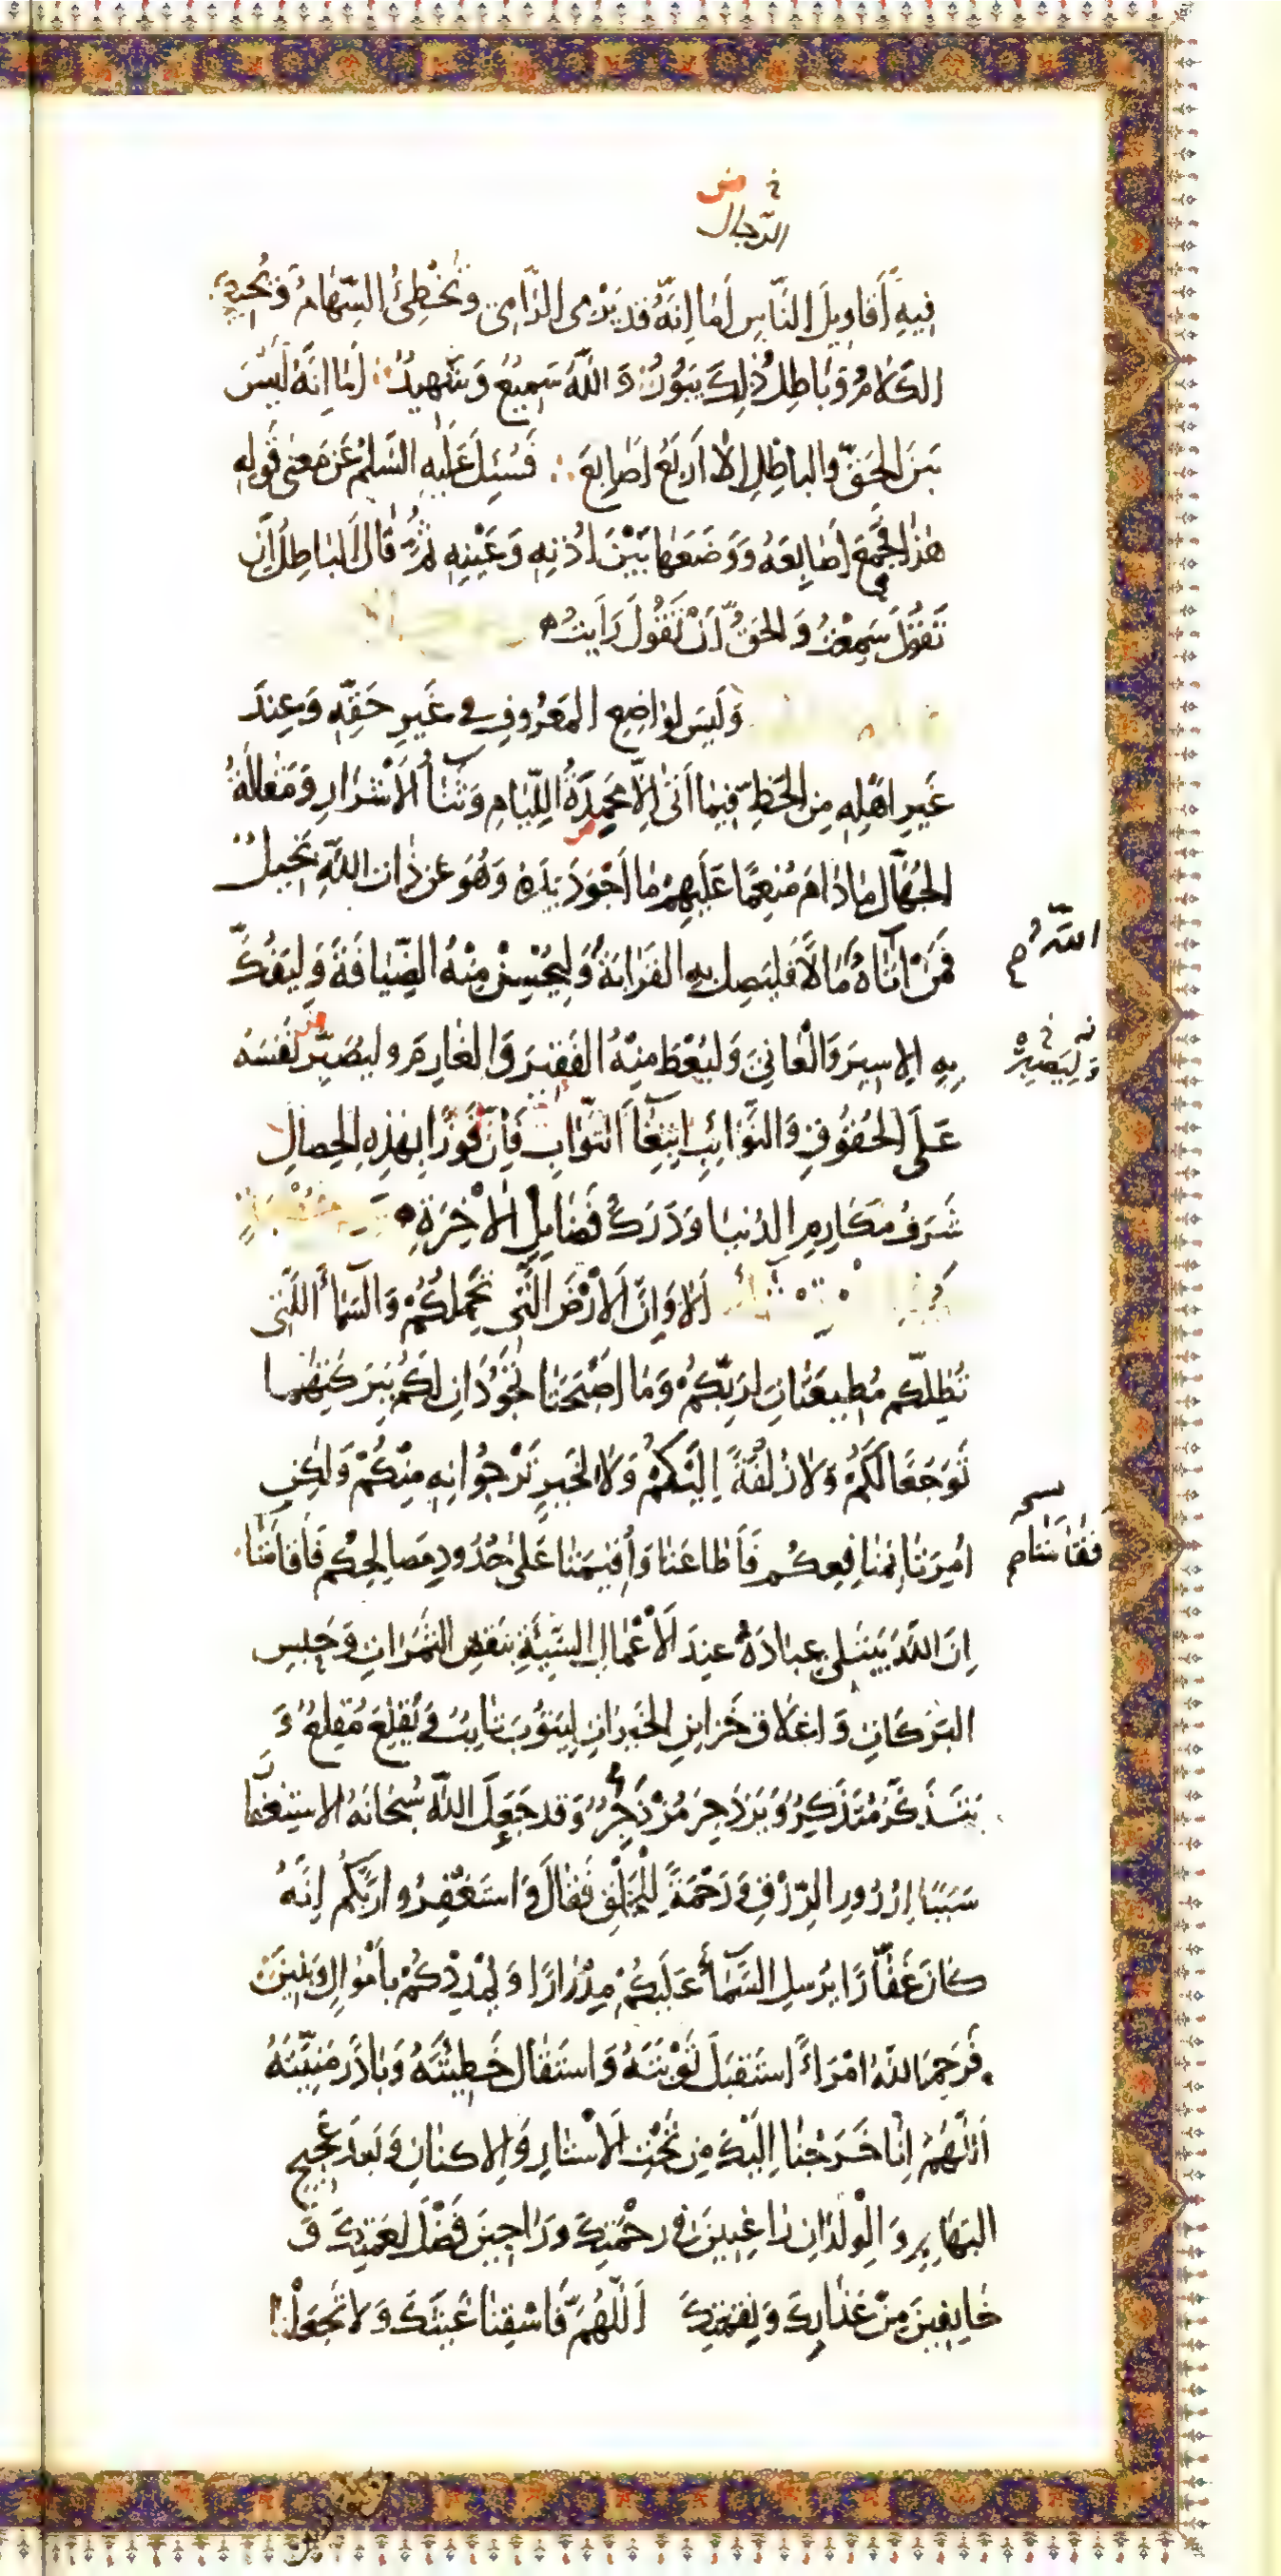 خ
الرجال
فِيهِ أَقَاوِيلَ النَّاسِ أَمَا إِنَّهُ قَد يَرْمِى الرَّامِى وَتُخْطِئُ السِّهَامُ وَيُحِيلُ
الكَلَامُ وَبَاطِلُ ذٰلِكَ يَبُورُ وَاللَّهُ سَمِيعٌ وَشَهِيدٌ أَمَا إِنَّهُ لَيْسَ
بَينَ الحَقِّ والبَاطِلِ إلَّا أَربَعُ أَصَابِعَ فَسُئِلَ عَلَيهِ السَّلٰمُ عَن مَعنى قَولِهِ
هٰذَا فَجَمَعَ أَصَابِعَهُ وَوَضَعَهَا بَيْنَ أُذنِهِ وَعَيْنِهِ ثُمَّ قَالَ البَاطِلُ أَن
تَقُولَ سَمِعْتُ وَالحَقُّ أَنْ تَقُولَ رَأَيتُ
وَلَيسَ لِوَاضِعِ المَعرُوفِ فِي غَيرِ حَقِّهِ وَعِندَ
غَيرِ أهلِهِ مِنَ الحَظِّ فِيمَا أَتَى إِلَّا مَحمِدَةُ اللِّئَامِ وَثَنَاءُ الأَشْرَارِ وَمَقَالَةُ
الجُهَّالِ مَا دَامَ مُنعِمًا عَلَيهِمْ مَا أَجْوَدَ يَدَهُ وَهُوَ عَن ذَاتِ اللّهِ بَخِيلٌ
فَمَنْ آتَاهُ اللَّهُ مَالًا فَليَصِل بِهِ القَرَابَةَ وَليُحْسِنْ مِنْهُ الضِّيَافَةَ وَليَفُكَّ
بِهِ الاسِيرَ وَالْعَانِيَ وَليُعْطِ مِنْهُ الفَقِيرَ وَالغَارِمَ وليُصَبِّر نَفسَهُ
وَلِيَصبِرْ
عَلَى الحُقُوقِ وَالنَّوَائِبِ ابتِغَاءَ الثَّوَابِ فَإِنَّ فَوزًا بِهٰذِهِ الخِصَالِ
شَرَفُ مَكَارِمِ الدُنيَا وَدَرَكُ فَضَايِلِ الآخِرَةِ
أَلَا وَإِنَّ الأَرْضَ الَّتِى تَحمِلُكُمْ وَالسَّمَاءَ الَّتِى
تُظِلُّكُم مُطِيعَتَانِ لِرَبِّكُمْ وَمَا أَصْبَحَتَا تَجُودَانِ لَكُم بِبَرَكَتِهِمَا
تَوَجُّعًا لَكُمْ وَلَا زُلْفَةً إِلَيْكُمْ وَلَا لِخَيرٍ تَرْجُوَانِهِ مِنْكُمْ وَلٰكِن
أُمِرَتَا بِمَنَافِعِكُم فَأَطَاعَتَا وَأُقِيمَتَا عَلَى حُدُودِ مَصَالِحِكُم فَأَقَامَتَا
فَقَامَتَا
إِنَّ اللّهَ يَبتَلِى عِبَادَهُ عِندَ الأَعْمَالِ السَّيِّئَةِ بِنَقصِ الثَّمَرَاتِ وَحَبسِ
البَرَكَاتِ وَإغلَاقِ خَزَائِنِ الخَيرَاتِ لِيَتُوبَ تَائِبٌ وَيُقلِعَ مُقلِعٌ وَ
يَتَذَكَّرَ مُتَذَكِّرٌ وَيَزدَجِرَ مُزدَجِرٌ وَقَد جَعَلَ اللَّهُ سُبحَانَهُ الاستِغفَا
سَبَبًا لِدُرُورِ الرِّزْقِ وَرَحْمَةً لِلْخَلْقِ فَقَالَ اسْتَغْفِرُوا رَبَّكُم إِنَّهُ
كَانَ غَفَّارًا يُرسِلِ السَّمَاءَ عَلَيكُمْ مِدْرَارًا وَيُمدِدْكُمْ بِأَموَالٍ وَبَنِينَ
فَرَحِمَ اللّهُ امْرَاءً استَقبَلَ تَوْبَتَهُ وَاستَقَالَ خَطِيئَتَهُ وَبَادَرَ مَنِيَّتَهُ
اللّهُمَّ إِنَّا خَرَجْنَا إِلَيْكَ مِن تَحْتِ الأَسْتَارِ وَالاكنَانِ وَبَعدَ عَجِيجِ
البَهَايِمِ وَالْوِلدَانِ رَاغِبِينَ فِي رحْمَتِكَ ورَاجِينَ فَضْلَ نِعمَتِكَ وَ
خَايِفِينَ مِنْ عَذَابِكَ وَنِقمَتِكَ اللّهُمَّ فَاسْقِنَا غَيثَكَ وَلَا تَجعَلْنَا